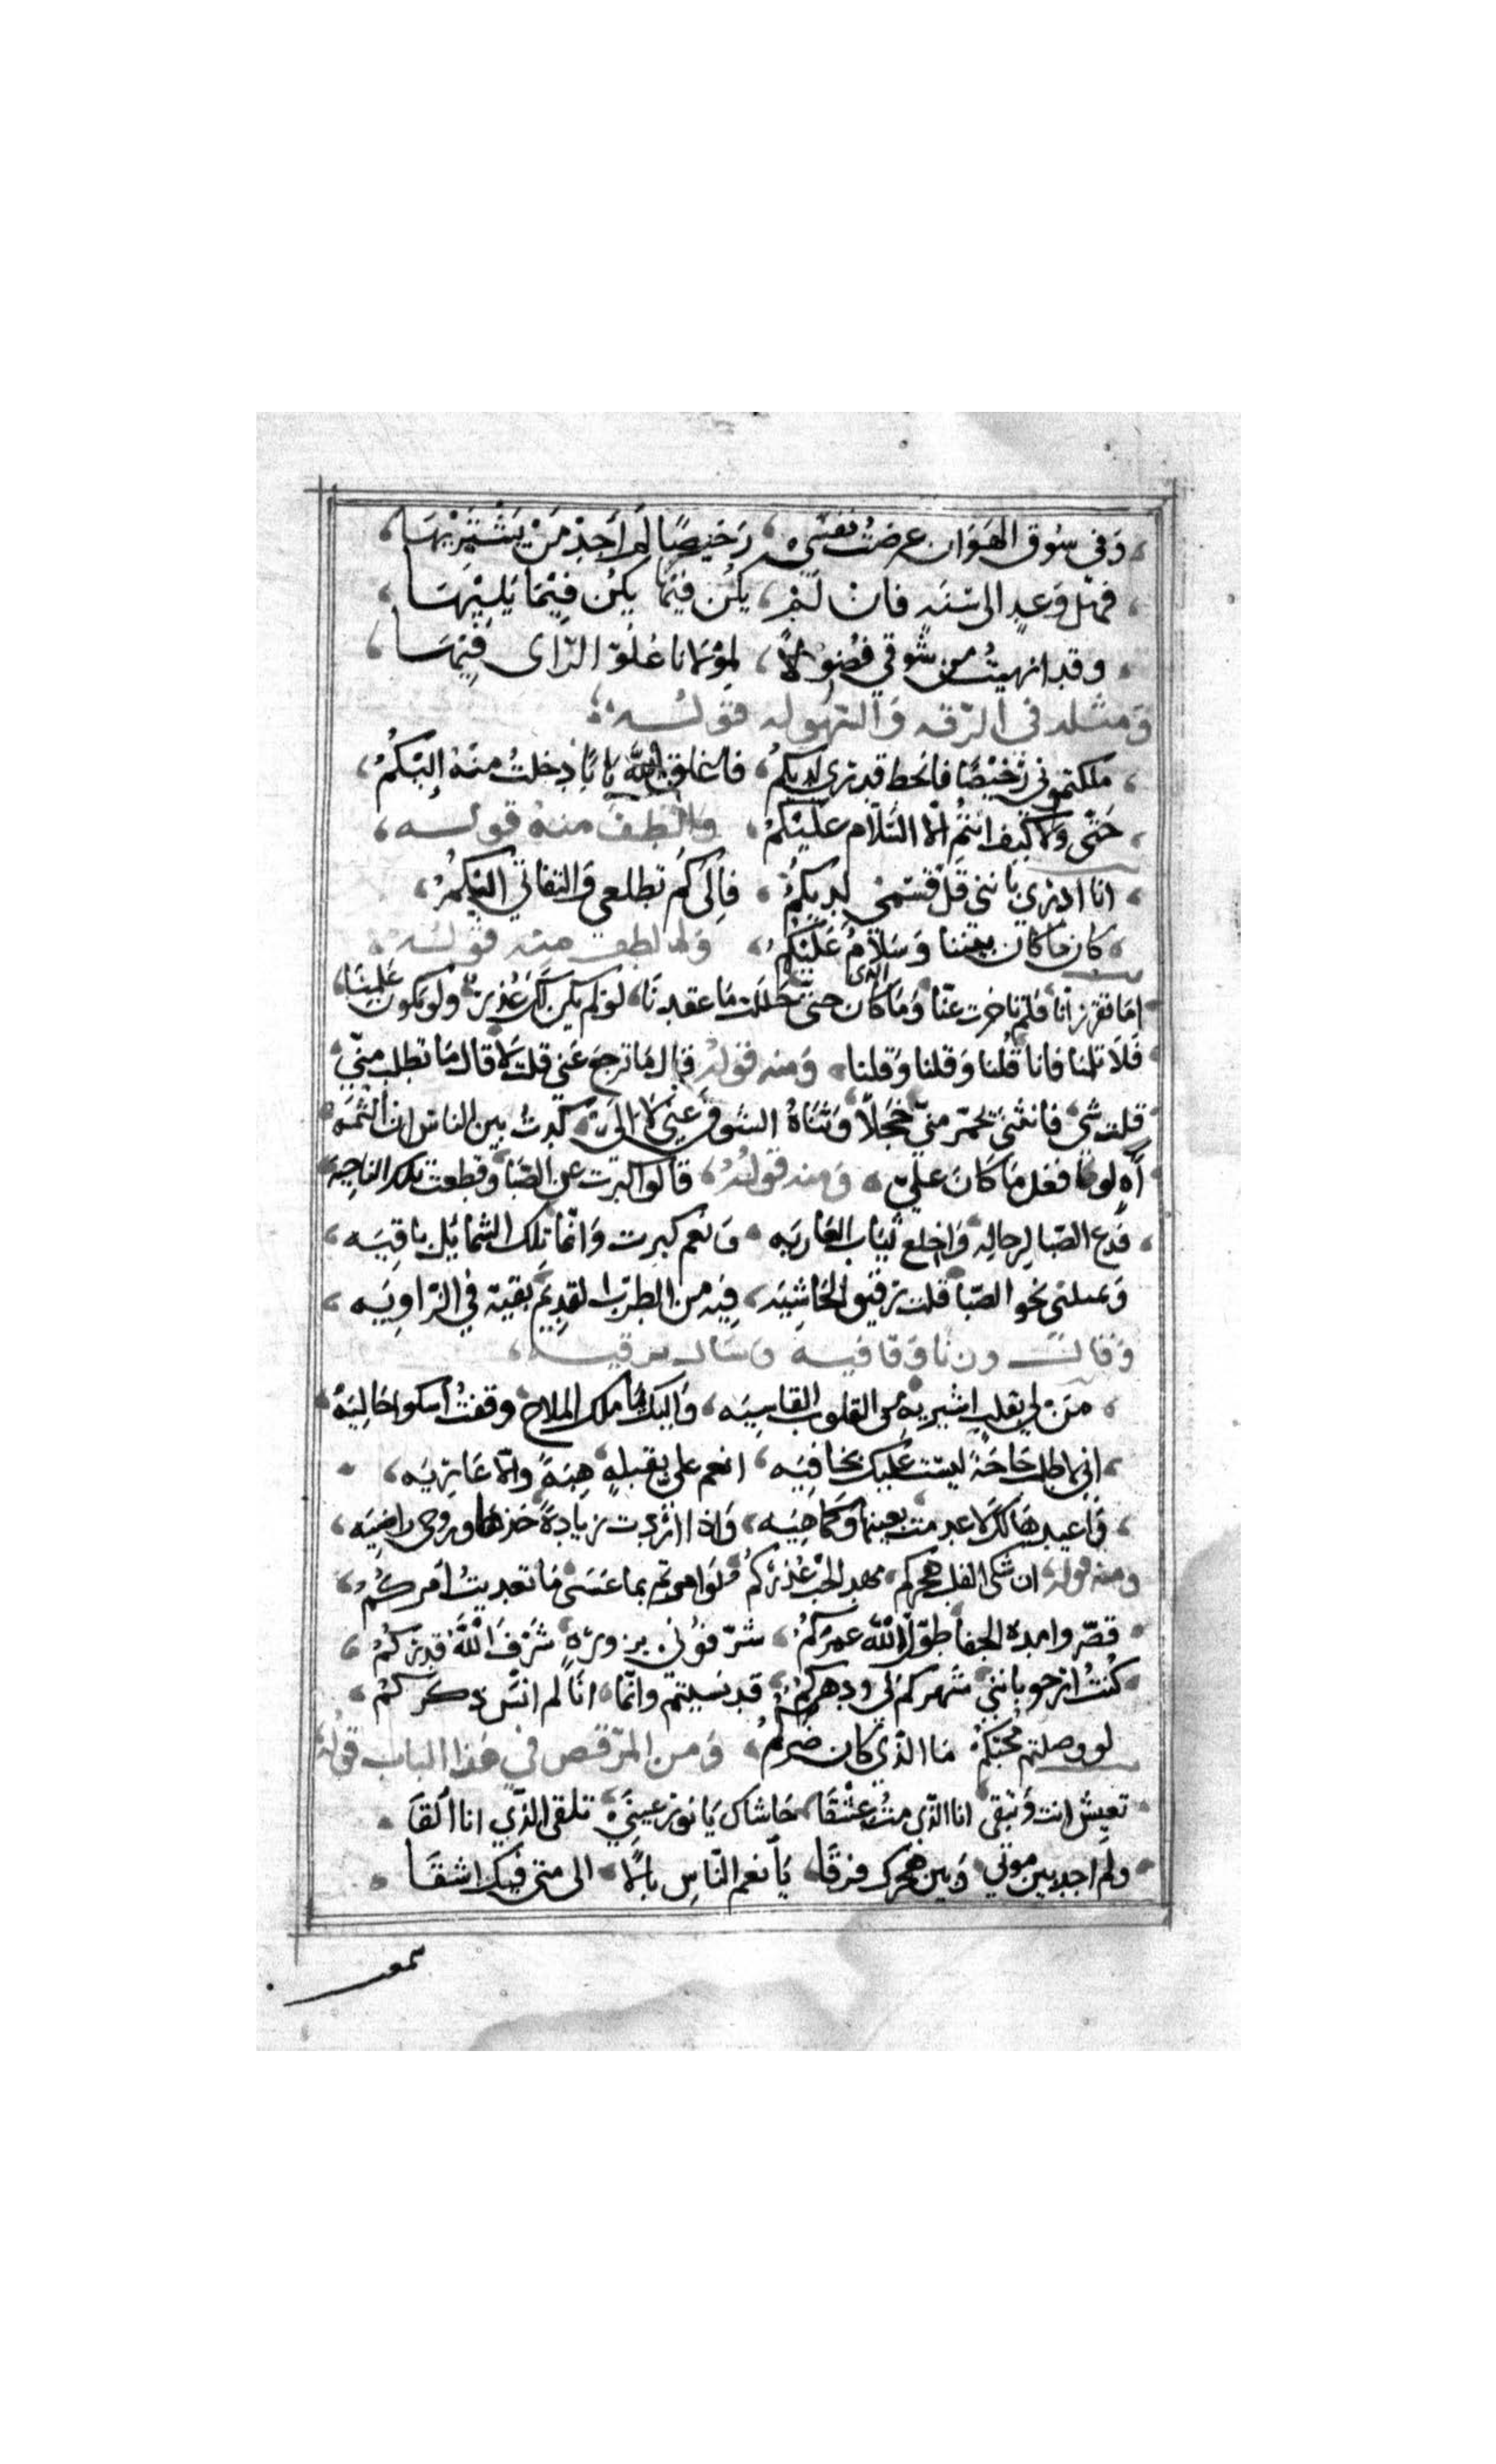 وَفي سُوق الهَوَان عرضتُ نفسِي، رَخيصًا لَم اَجِدْ مَنْ يَشْتَرِيْهَا،
فهل وَعدٍ الى سَنَه فان لَمْ، يكُن فيمَا يكُن فِيْمَا يَلِيْهَا،
وقد انهيتُ من شوقي فضُولاً، لمِوْلانا عُلوّ الرّاى فيهَا،
وَمثله في الرّقه وَالسّهوله قوْلـه،
ملكتموني رَخيْصًا فانحط قدري لديكُم، فاغلق الله بابًا دخلتُ منهُ إليْكُمْ،
حَتّى وَلا كيف انتُم الّا السَّلام عليْكمْ، والْطف منهُ قولـه،
انا ادري بانني قلّ قسْمي لديكُمُ، فالى كَم تطلعي وَالتفاتي اليْكمُ،
كان مَا كان بيننا وَسَلامٌ عَليْكُم، وَالطف منه قولـه،
امَا تقرر انّا فلم تاخرت عنّا وَمَا كان الذي حتى حَللت مَا عقدنَا، لو لم يكن لكَ عُذرٌ ولو يكون علَمِنَا،
فَلا تلمنا فانا قُلنا وَقلنا وَقلنا، وَمنه قولهُ قال مَا ترجع عَني قلت لَا قال مَا تطلب منّي
قلت شَي فانثنى يحمّر منيّ خجلاً وَثنَاهُ التيه عني لا الَى كدتُ بين الناس ان الثمهُ
آهِ لو افعل مَا كانَ عليّ، وَمنه قولُهُ، قالوا كبرت عن الصّبا وَقطعت تلك الناحيهَ
فدع الصّبا لرجاله وَاخلع ثيَاب العاريَه، وَنعم كبرت وَانّما تِلك الشمايُل باقِيَه،
وَيميلني نحو الصّبا قلت رقيق الحَاشِيَه، فِيه من الطرب القدِيم بقية في الزّاويَه،
وَقالـ وزنًا وَقافيه
منْ لي بقلبٍ اشتريه من القلوب القاسِيَه، وَاليك يا ملك الملاح وقفتُ اشكو حَاليَه،
اني اطلب حَاجَةً ليسَت عليك بخافِيَه، انعم علي بقبلهٍ هبةً والّا عَاريَه،
وَاعيدها لك لا عدمت بعينها وَكما هِيَه، وَاذا اردت زيَادةً خذها وروحى راضِيَه،
ومنه قوله، ان شكى القلب هجركم، مهد الحبّ عُذركُم،
قصّروا مدة الجفا طوّل اللّه عمرَكمُ، شرّفوُني بزورةٍ شَرّفَ الله قدركُمْ،
كُنتُ ارجو بانني شهركم لى ودهركم، قد نسيتم وانّما، انَا لم انسَ ذكركم،
لو وصلتم محبّكم مَا الذّي كان ضرّكم، وَمن المرّقص في هَذا الباب قولهُ
تعيش انت وَتبقى انا الذّي مُتُّ عشْقَا حَاشاك يَا نور عينَيَّ تلقى الذّي انا القَا
ولم اجد بين موتي وَبين هجرك فرقَا، يَا انعم النّاسِ بالًا، الى متى فيك اشقَا